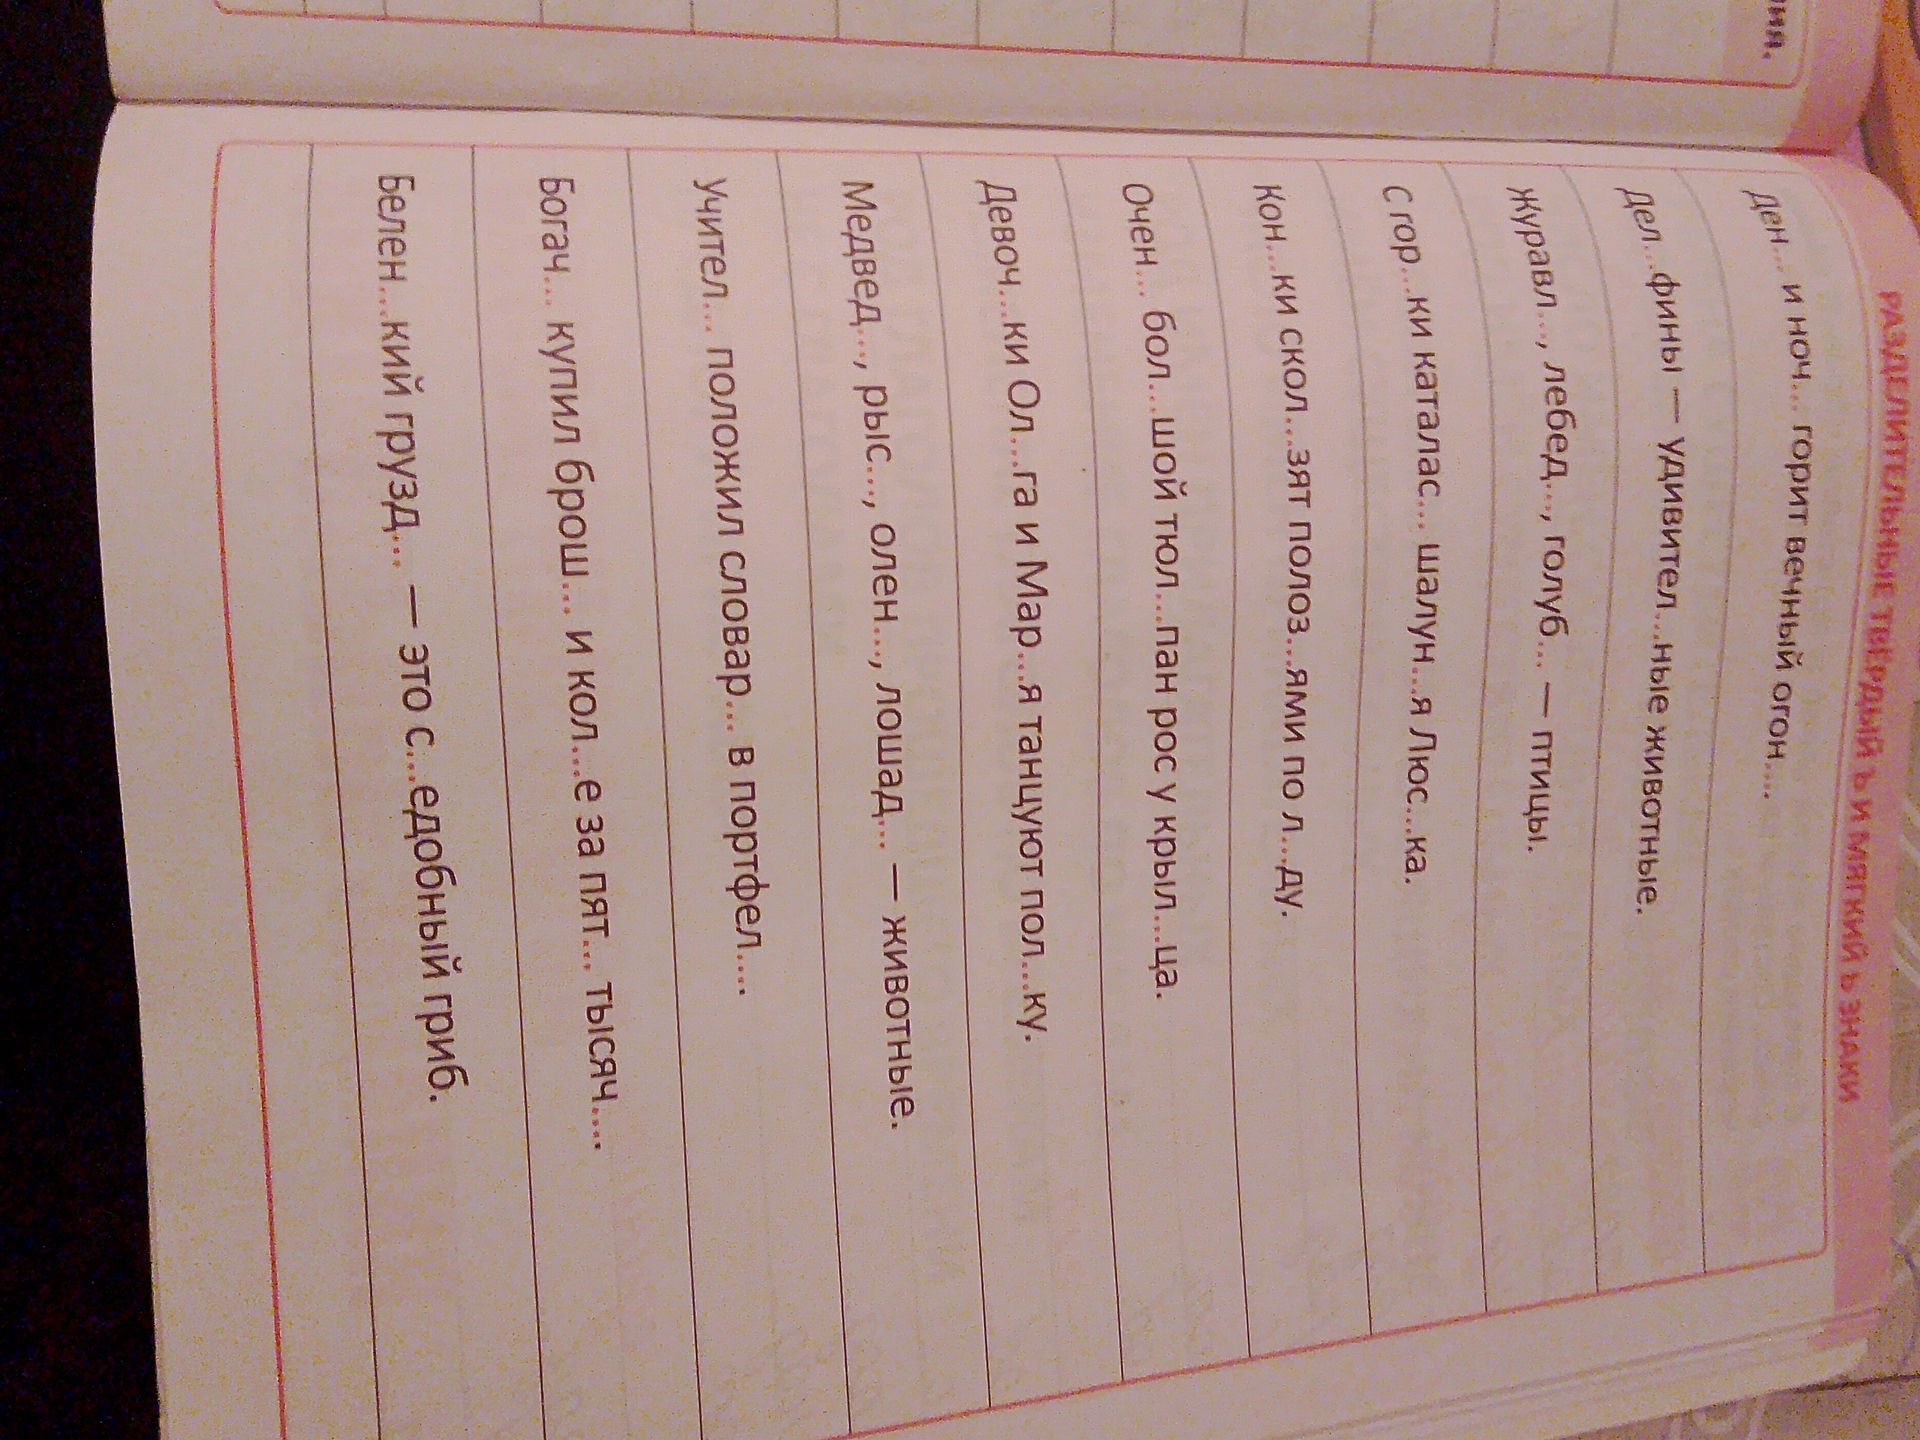 ния.
РАЗДЕЛИТЕЛЬНЫЕ ТВЁРДЫЙ Ъ И МЯГКИЙ Ь ЗНАКИ
Ден... и ноч... горит вечный огон....
Дел...фины — удивител...ные животные.
Журавл..., лебед..., голуб... — птицы.
С гор...ки каталас... шалун...я Люс...ка.
Кон...ки скол...зят полоз...ями по л...ду.
Очен... бол...шой тюл...пан рос у крыл...ца.
Девоч...ки Ол...га и Мар...я танцуют пол...ку.
Медвед..., рыс..., олен..., лошад... — животные.
Учител... положил словар... в портфел....
Богач... купил брош... и кол...е за пят... тысяч....
Белен...кий грузд... — это с...едобный гриб.